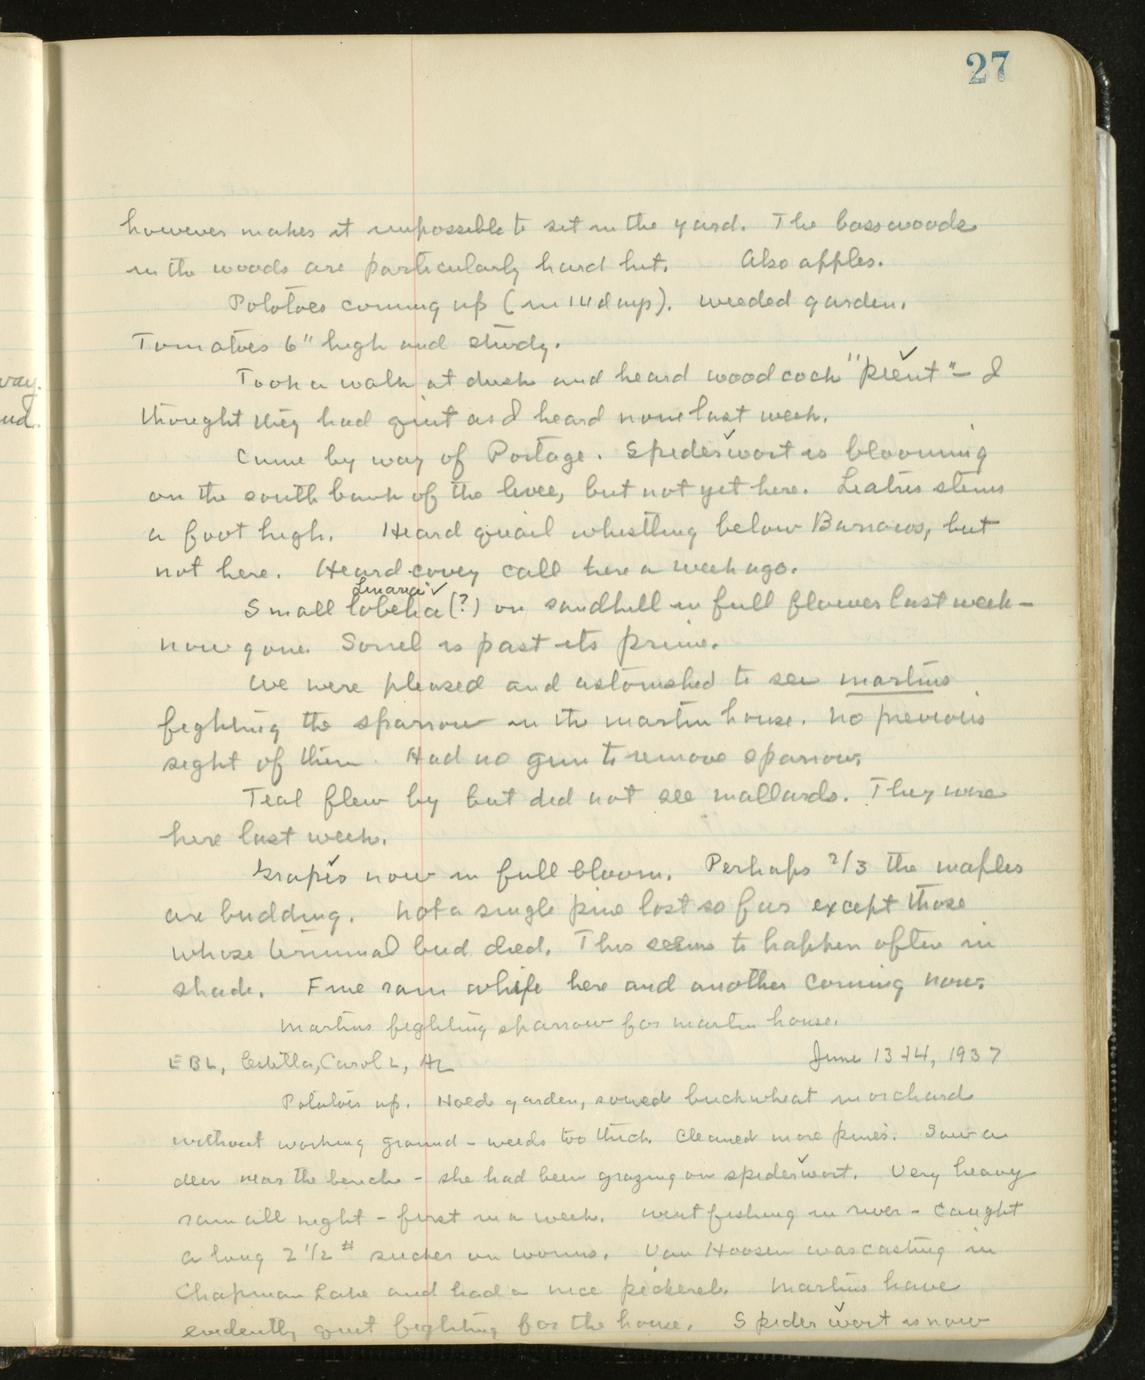 27
way.
ud.
however makes it impossible to set in the yard. The basswoods
in the woods are particularly hard hit. Also apples.
Potatoes coming up (in 14 days). weeded garden.
Tomatoes 6" high and sturdy.
Took a walk at dusk and heard woodcock "pient" - I
thought they had quit as I heard none last week.
Came by way of Portage. Spiderwort is blooming
on the south bank of the levee, but not yet here. Liatris stems
a foot high. Heard quail whistling below Barrows, but
not here. Heard covey call here a week ago.
Linaria ✓
Small lobelia (?) on sandhill in full flower last week -
now gone. Sorrel is past its prime.
We were pleased and astonished to see martins
fighting the sparrow in the martin house. No previous
sight of them. Had no gun to remove sparrow.
Teal flew by but did not see mallards. They were
here last week.
Grapes now in full bloom. Perhaps 2/3 the maples
are budding. Not a single pine lost so far except those
whose terminal bud died. This seems to happen often in
shade. Fine rain while here and another coming now.
Martins fighting sparrow for martin house.
EBL, Estella, Carol L, AL June 13-14, 1937
Potatoes up. Hoed garden, sowed buckwheat in orchard
without working ground - weeds too thick. Cleaned more pines. Saw a
deer near the bench - she had been grazing on spiderwort. Very heavy
rain all night - first in a week. Went fishing in river - caught
a long 2 1/2 # sucker on worms. Van Hoosen was casting in
Chapman Lake and had a nice pickerel. Martins have
evidently quit fighting for the house. Spiderwort is now